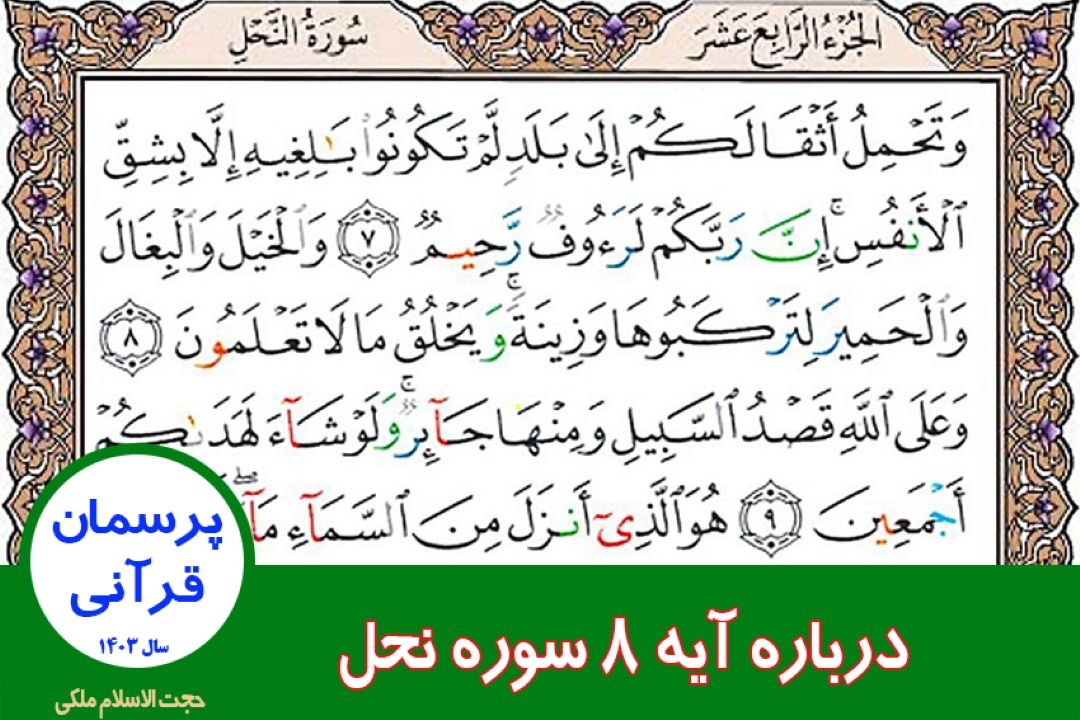 الجُزْءُ الرَّابِعَ عَشَرَ
سُورَةُ النَّحْلِ
وَتَحْمِلُ أَثْقَالَكُمْ إِلَىٰ بَلَدٍ لَّمْ تَكُونُوا۟ بَـٰلِغِيهِ إِلَّا بِشِقِّ
ٱلْأَنفُسِ ۚ إِنَّ رَبَّكُمْ لَرَءُوفٌ رَّحِيمٌ ٧ وَٱلْخَيْلَ وَٱلْبِغَالَ
وَٱلْحَمِيرَ لِتَرْكَبُوهَا وَزِينَةً ۚ وَيَخْلُقُ مَا لَا تَعْلَمُونَ ٨
وَعَلَى ٱللَّهِ قَصْدُ ٱلسَّبِيلِ وَمِنْهَا جَآئِرٌ ۚ وَلَوْ شَآءَ لَهَدَىٰكُمْ
أَجْمَعِينَ ٩ هُوَ ٱلَّذِىٓ أَنزَلَ مِنَ ٱلسَّمَآءِ مَآ
پرسمان
قرآنی
سال ۱۴۰۳
درباره آیه ۸ سوره نحل
حجت الاسلام ملکی